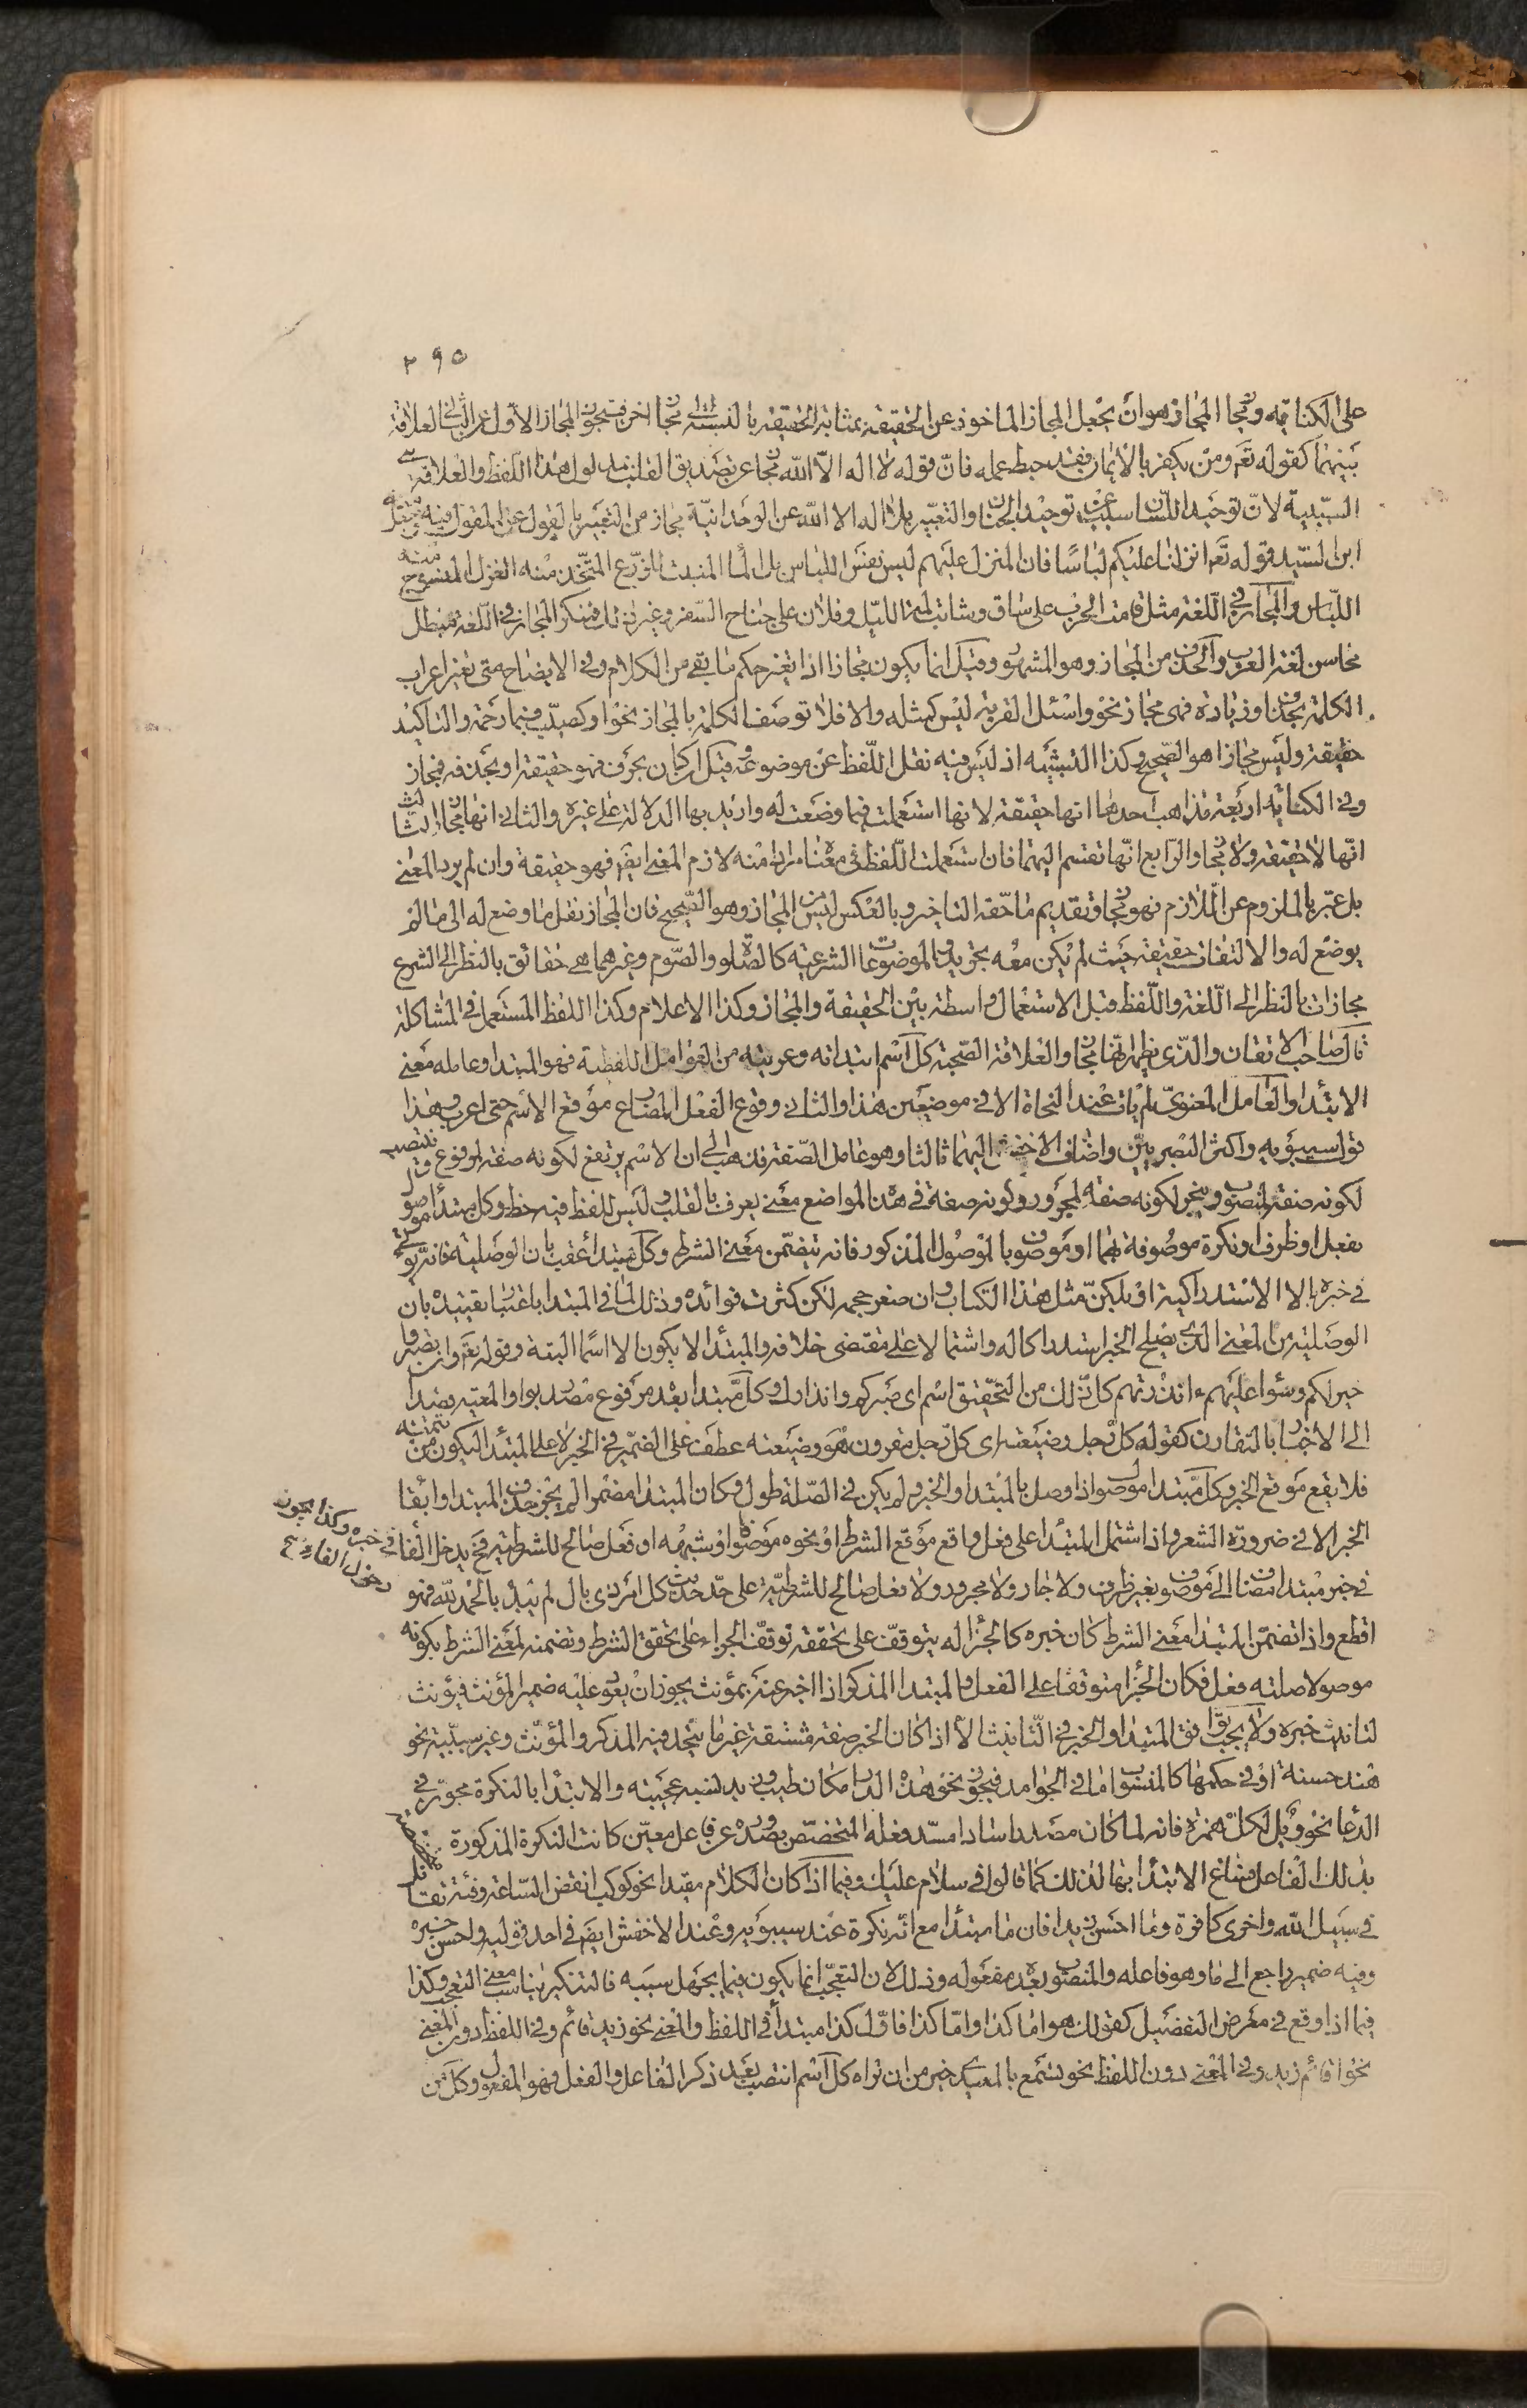 ٢٩٥
على الكناية ومجاز المجاز هو ان يجعل المجاز الماخوذ عن الحقيقة بمثابة الحقيقة بالنسبة الى مجاز اخر فتجوز المجاز الاول عن الثاني لعلاقة
بينهما كقوله تع ومن يكفر بالايمان فقد حبط عمله فانّ قوله لا اله الا الله مجاز عن تصديق القلب بمدلول هذا اللفظ والعلاقة هي
السببية لانّ توحيد اللسان سبب عن توحيد الجنان والتعبير بلا اله الا الله عن الوحدانية مجاز من التعبير بالقول عن المقول فيه وجعل منه
ابن السيد قوله تع انزلنا عليكم لباسا فان المنزل عليهم ليس نفس اللباس بل الماء المنبت للزرع المتخذ منه الغزل المنسوج منه
اللباس والمجاز في اللغة مثل قامت الحرب على ساق وشابت لمة الليل وفلان على جناح السفر وغير ذلك فمنكر المجاز في اللغة مبطل
محاسن لغة العرب والحذف من المجاز وهو المشهور وقيل انما يكون مجازا اذا تغير حكم ما بقي من الكلام وفي الايضاح متى تغير اعراب
الكلمة بحذف او زيادة فهي مجاز نحو واسئل القرية ليس كمثله والا فلا توصف الكلمة بالمجاز نحو او كصيب فبما رحمة والتاكيد
حقيقة وليس مجازا هو الصحيح وكذا التشبيه اذ ليس فيه نقل اللفظ عن موضوعه وقيل ان كان بحرف فهو حقيقة او بحذفه فمجاز
وفي الكناية اربعة مذاهب احدها انها حقيقة لانها استعملت فيما وضعت له واريد بها الدلالة على غيره والثاني انها مجاز الثالث
انها لا حقيقة ولا مجاز والرابع انها تقسم اليهما فان استعملت اللفظ في معناه مرادا منه لازم المعنى ايضا فهو حقيقة وان لم يرد المعنى
بل عبر بالملزوم عن اللازم فهو مجاز وتقديم ما حقه التاخير وبالعكس ليس من المجاز وهو الصحيح فان المجاز نقل ما وضع له الى ما لم
يوضع له والالتفات حقيقة حيث لم يكن معه تجريد والموضوعات الشرعية كالصلوة والصوم وغيرهما هي حقائق بالنظر الى الشرع
مجازات بالنظر الى اللغة واللفظ قبل الاستعمال واسطة بين الحقيقة والمجاز وكذا الاعلام وكذا اللفظ المستعمل في المشاكلة
قال صاحب الاتقان والذي يظهر انها مجاز والعلاقة الصحبة كل اسم ابتداته وعريته من العوامل اللفظية فهو المبتدا وعامله معنى
الابتدا والعامل المعنوي لم يات عند النحاة الا في موضعين هذا والثاني وقوع الفعل المضارع موقع الاسم حتى اعرب وهذا
قول سيبويه واكثر البصريين واضاف الاخفش اليهما ثالثا وهو عامل الصفة فذهب الى ان الاسم يرتفع لكونه صفة لمرفوع وينتصب
لكونه صفة لمنصوب وينجر لكونه صفة لمجرور وكونه صفة في هذه المواضع معنى يعرف بالقلب وليس للفظ فيه حظ وكل مبتدا موصول
بفعل او ظرف او نكرة موصوفة بهما او موصوف بالموصول المذكور فانه يتضمن معنى الشرط وكل مبتدا عقب بان الوصلية فانه يؤتى
في خبره بالا الاستدراكية او بلكن مثل هذا الكتاب وان صغر حجمه لكن كثرت فوائده وذلك لما في المبتدا باعتبار تقييده بان
الوصلية من المعنى الذي يصلح الخبر استدراكا له واشتمالا على مقتضى خلافه والمبتدا لا يكون الا اسما البتة وقوله تع وان تصبروا
خير لكم وسواء عليهم ءانذرتهم كل ذلك من التحقيق اسم اي صبركم وانذارك وكل مبتدا بعده مرفوع مصدر بواو المعية قصدا
الى الاخبار بالتقارن كقوله كل رجل وضيعته اي كل رجل مقرون هو وضيعته عطف على الضمير في الخبر لا على المبتدا ليكون من تتمته
فلا يقع موقع الخبر وكل مبتدا موصول اذا وصل بالمبتدا والخبر ولم يكن في الصلة طول وكان المبتدا مضمرا لم يجز حذف المبتدا وابقاء
الخبر الا في ضرورة الشعر واذا اشتمل المبتدا على فعل واقع موقع الشرط او نحوه موصوفا وشبهه او فعل صالح للشرطية فح يدخل الفاء في خبره وكذا يجوز دخول الفاء
في خبر مبتدا مضاف الى موصوف بغير ظرف ولا جار ولا مجرور ولا فعل صالح للشرطية على حد حديث كل امر ذي بال لم يبدأ بالحمد لله فهو
اقطع واذا تضمن المبتدا معنى الشرط كان خبره كالجزاء له يتوقف على تحققه توقف الجزاء على تحقق الشرط وتضمنه لمعنى الشرط بكونه
موصولا صلته فعل فكان الجزا متوقفا على الفعل والمبتدا المذكر اذا اخبر عنه بمؤنث يجوز ان يعود عليه ضمير المؤنث فيؤنث
لتانيث خبره ولا يجب توافق المبتدا والخبر في التانيث الا اذا كان الخبر صفة مشتقة غير ما يتحد فيه المذكر والمؤنث وغير سببية نحو
هند حسنة او في حكمها كالمنسوب اما في الجوامد فيجوز نحو هذه الدار مكان طيب وزيد نسمة عجيبة والابتدا بالنكرة مجوز في
الدعا نحو ويل لكل همزة فانه لما كان مصدرا سادا مسد فعله المتخصص بصدوره عن فاعل معين كانت النكرة المذكورة متخصصة
بذلك الفاعل فساغ الابتدا بها لذلك كما قالوا في سلام عليك وفيما اذا كان الكلام مقيدا نحو كوكب انقض الساعة وفئة تقاتل
في سبيل الله واخرى كافرة وما احسن زيدا فان ما مبتدا مع انه نكرة عند سيبويه وعند الاخفش ايضا في احد قوليه واحسن خبره
وفيه ضمير راجع الى ما وهو فاعله والمنصوب بعده مفعوله وذلك لان التعجب انما يكون فيما يجهل سببه فالتنكير يناسب معنى التعجب وكذا
فيما اذا وقع في معرض التفصيل كقولك هو اما كذا واما كذا فالاول كذا مبتدأ في اللفظ والمعنى نحو زيد قائم وفي اللفظ دون المعنى
نحو اقائم زيد وفي المعنى دون اللفظ نحو تسمع بالمعيدي خير من ان تراه كل اسم انتصب بعد ذكر الفاعل والفعل فهو المفعول وكل من